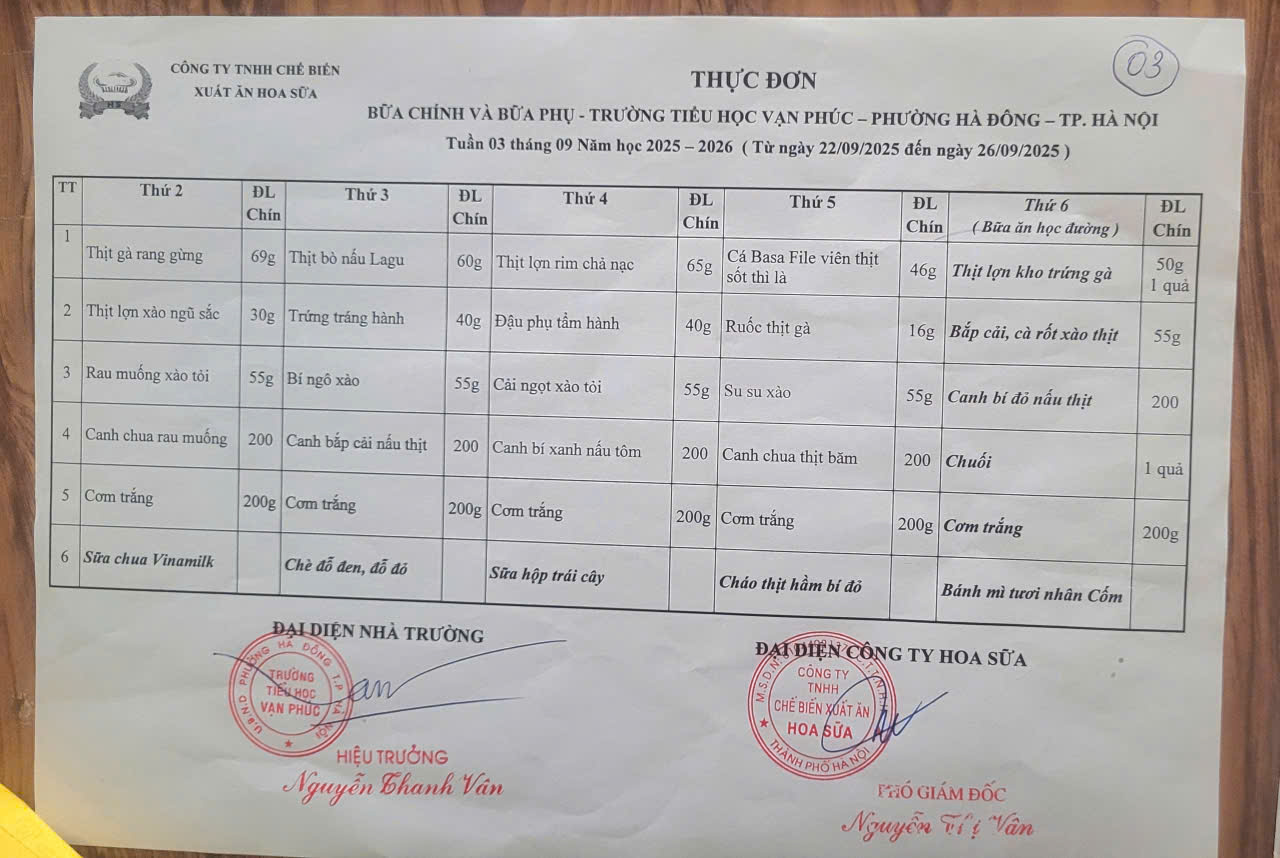 CÔNG TY TNHH CHẾ BIẾN
XUẤT ĂN HOA SỮA
HS
03
THỰC ĐƠN
BỮA CHÍNH VÀ BỮA PHỤ - TRƯỜNG TIỂU HỌC VẠN PHÚC – PHƯỜNG HÀ ĐÔNG – TP. HÀ NỘI
Tuần 03 tháng 09 Năm học 2025 – 2026 ( Từ ngày 22/09/2025 đến ngày 26/09/2025 )
TT Thứ 2 ĐL Chín Thứ 3 ĐL Chín Thứ 4 ĐL Chín Thứ 5 ĐL Chín Thứ 6 ( Bữa ăn học đường ) ĐL Chín
1 Thịt gà rang gừng 69g Thịt bò nấu Lagu 60g Thịt lợn rim chả nạc 65g Cá Basa File viên thịt sốt thì là 46g Thịt lợn kho trứng gà 50g 1 quả
2 Thịt lợn xào ngũ sắc 30g Trứng tráng hành 40g Đậu phụ tẩm hành 40g Ruốc thịt gà 16g Bắp cải, cà rốt xào thịt 55g
3 Rau muống xào tỏi 55g Bí ngô xào 55g Cải ngọt xào tỏi 55g Su su xào 55g Canh bí đỏ nấu thịt 200
4 Canh chua rau muống 200 Canh bắp cải nấu thịt 200 Canh bí xanh nấu tôm 200 Canh chua thịt băm 200 Chuối 1 quả
5 Cơm trắng 200g Cơm trắng 200g Cơm trắng 200g Cơm trắng 200g Cơm trắng 200g
6 Sữa chua Vinamilk Chè đỗ đen, đỗ đỏ Sữa hộp trái cây Cháo thịt hầm bí đỏ Bánh mì tươi nhân Cốm
ĐẠI DIỆN NHÀ TRƯỜNG
U.B.N.D PHƯỜNG HÀ ĐÔNG T.P HÀ NỘI
TRƯỜNG
TIỂU HỌC
VẠN PHÚC
HIỆU TRƯỞNG
Nguyễn Thanh Vân
ĐẠI DIỆN CÔNG TY HOA SỮA
M.S.D.N:
CÔNG TY
TNHH
CHẾ BIẾN XUẤT ĂN
HOA SỮA
THÀNH PHỐ HÀ NỘI
PHÓ GIÁM ĐỐC
Nguyễn Thị Vân